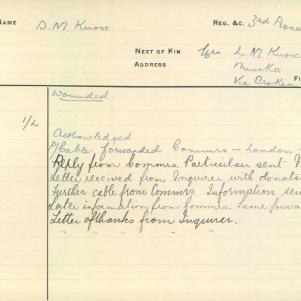 NAME D. M. Knox. REG. &C. 3rd
NEXT OF KIN Mrs L. M. Knox
ADDRESS
Via Broken
FI
Wounded.
1/2 Acknowledged
P/Cable forwarded Commrs – London –
Reply from Commrs. Particulars sent
Letter received from Inquirer with donat
Further cable from Commrs Information sen
Later information from Commrs. Same forwa
Letter of thanks from Inquirer.
" " " "